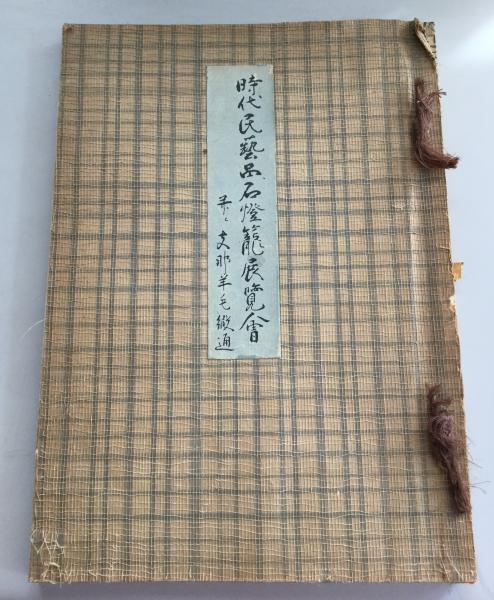 時代民藝品石燈籠展覽會
并ニ支那羊毛緞通